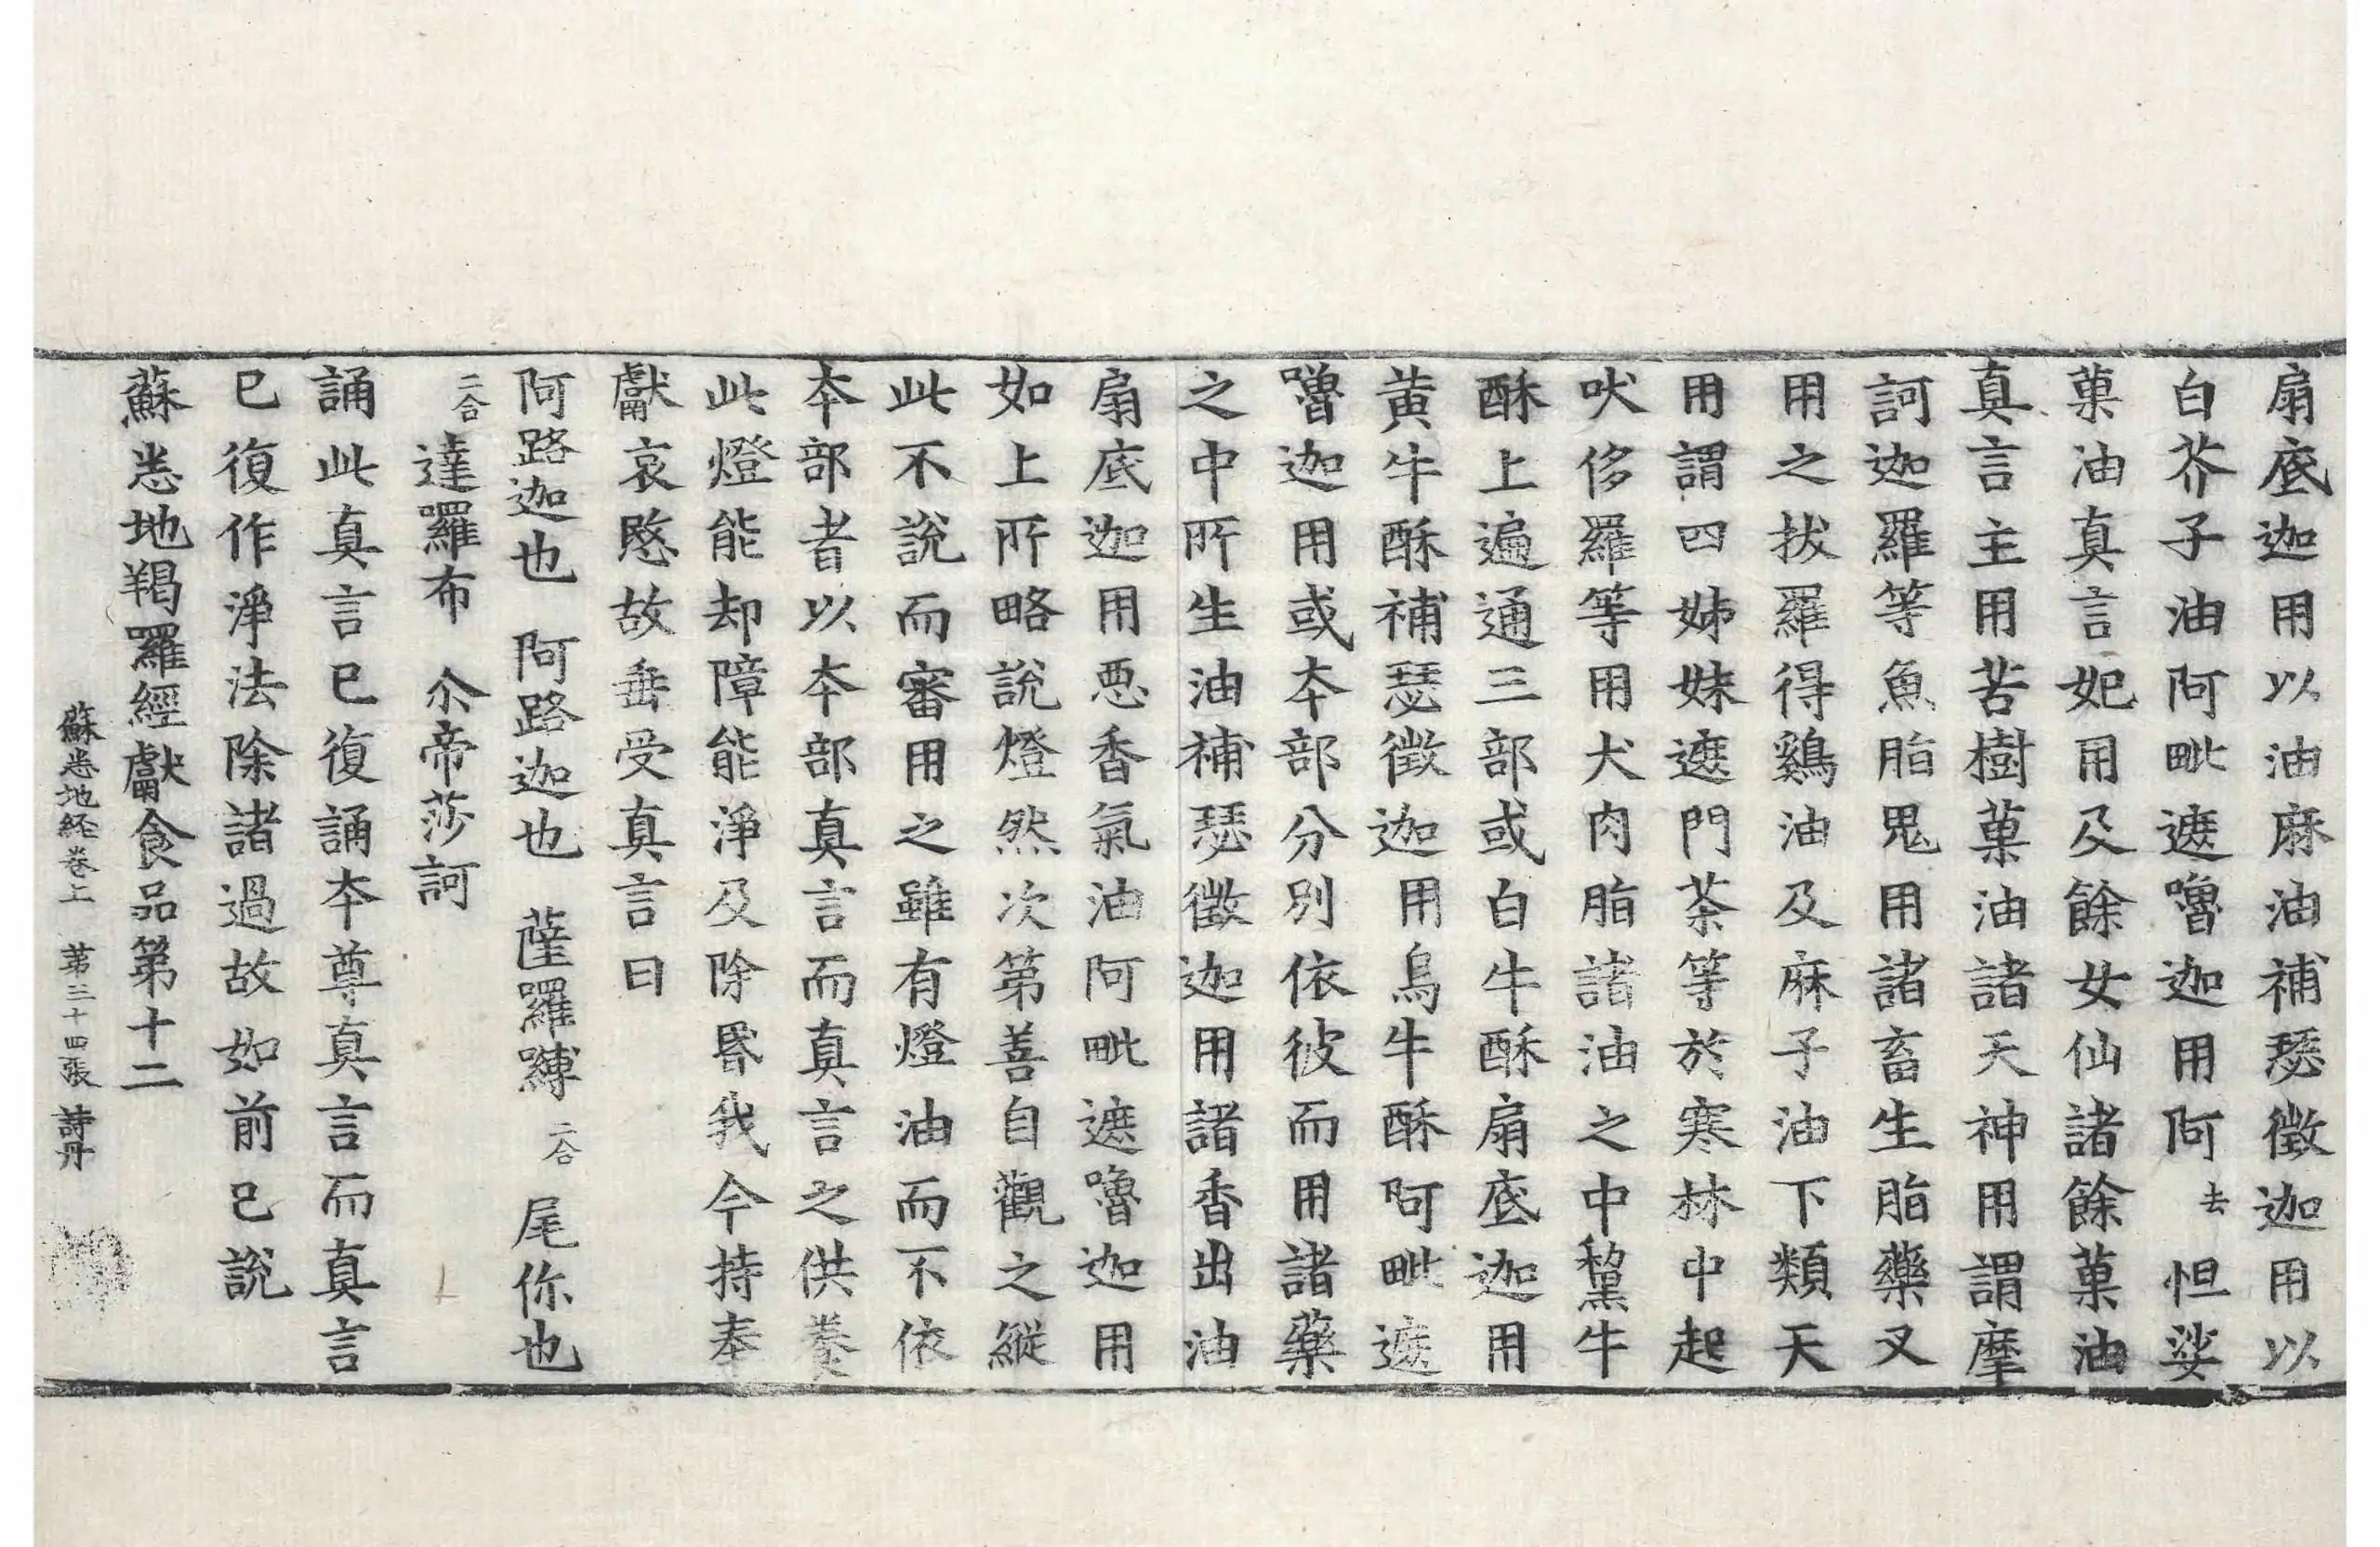 扇底迦用以油麻油補瑟徵迦用以
白芥子油阿毗遮嚕迦用阿去怛娑
菓油真言妃用及餘女仙諸餘菓油
真言主用苦樹菓油諸天神用謂摩
訶迦羅等魚脂鬼用諸畜生脂藥叉
用之拔羅得鷄油及麻子油下類天
用謂四姊妹遮門茶等於寒林中起
吠侈羅等用犬肉脂諸油之中黧牛
酥上遍通三部或白牛酥扇底迦用
黃牛酥補瑟徵迦用烏牛酥阿毗遮
嚕迦用或夲部分別依彼而用諸藥
之中所生油補瑟徵迦用諸香出油
扇底迦用惡香氣油阿毗遮嚕迦用
如上所略說燈然次第善自觀之縱
此不說而審用之雖有燈油而不依
夲部者以夲部真言而真言之供養
此燈能却障能淨及除昬我今持奉
獻哀愍故垂受真言曰
阿路迦也 阿路迦也 薩羅嚩二合尾你也
二合達羅布 尒帝莎訶
誦此真言已復誦夲尊真言而真言
已復作淨法除諸過故如前已說
蘇悉地羯羅經獻食品第十二
蘇悉地経卷上 第三十四張 詩 丹